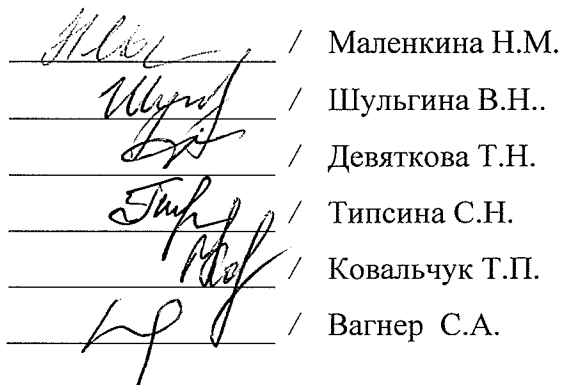 / Маленкина Н.М.
/ Шульгина В.Н..
/ Девяткова Т.Н.
/ Типсина С.Н.
/ Ковальчук Т.П.
/ Вагнер С.А.